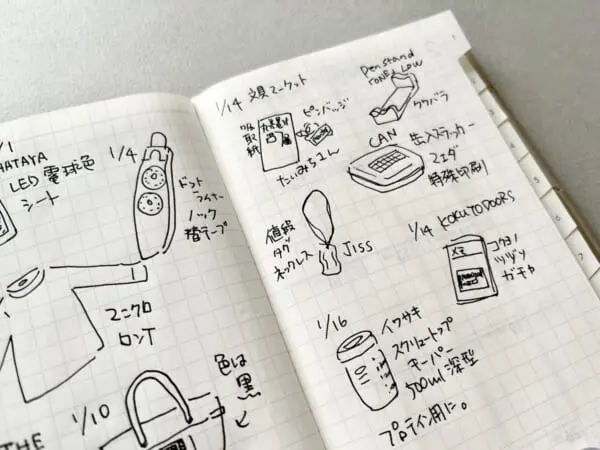 HATAYA
LED電球色
シート
1/4
ドット
ライナー
ノック
替テープ
ユニクロ
ロンT
1/10
色は
黒
THE
1/14 文具マーケット
吸取紙
ピンバッジ
たいみちさん
Pen stand
CAN
特殊印刷
値段
タグ
ネックレス
JISS
1/14 KOKUYODOORS
コクヨノ
ガチャ
1/16
イワサキ
スクリュートップ
キーパー
500ml深型
プロテイン用に。